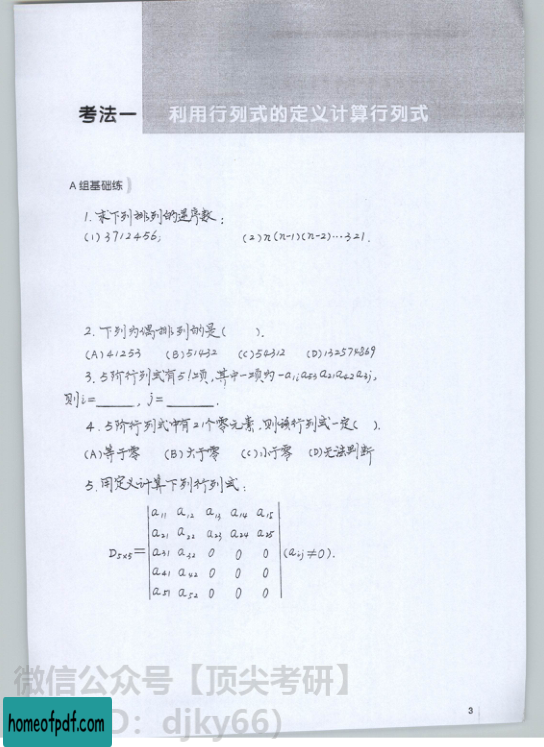 考法一 利用行列式的定义计算行列式
A 组基础练
1.求下列排列的逆序数：
(1)3712456; (2)n(n-1)(n-2)…321.
2.下列为偶排列的是( ).
(A)41253 (B)51432 (C)54312 (D)132574869
3.5阶行列式有5!项,其中一项为-a₁ᵢa₅₃a₂₁a₄₂a₃ⱼ,
则i=______, j=______.
4.5阶行列式中有21个零元素,则该行列式一定( ).
(A)等于零 (B)大于零 (C)小于零 (D)无法判断
5.用定义计算下列行列式：
a₁₁ a₁₂ a₁₃ a₁₄ a₁₅
a₂₁ a₂₂ a₂₃ a₂₄ a₂₅
D₅ₓ₅= a₃₁ a₃₂ 0 0 0 (aᵢⱼ≠0).
a₄₁ a₄₂ 0 0 0
a₅₁ a₅₂ 0 0 0
微信公众号【顶尖考研】
D：djky66)
homeofpdf.com
3